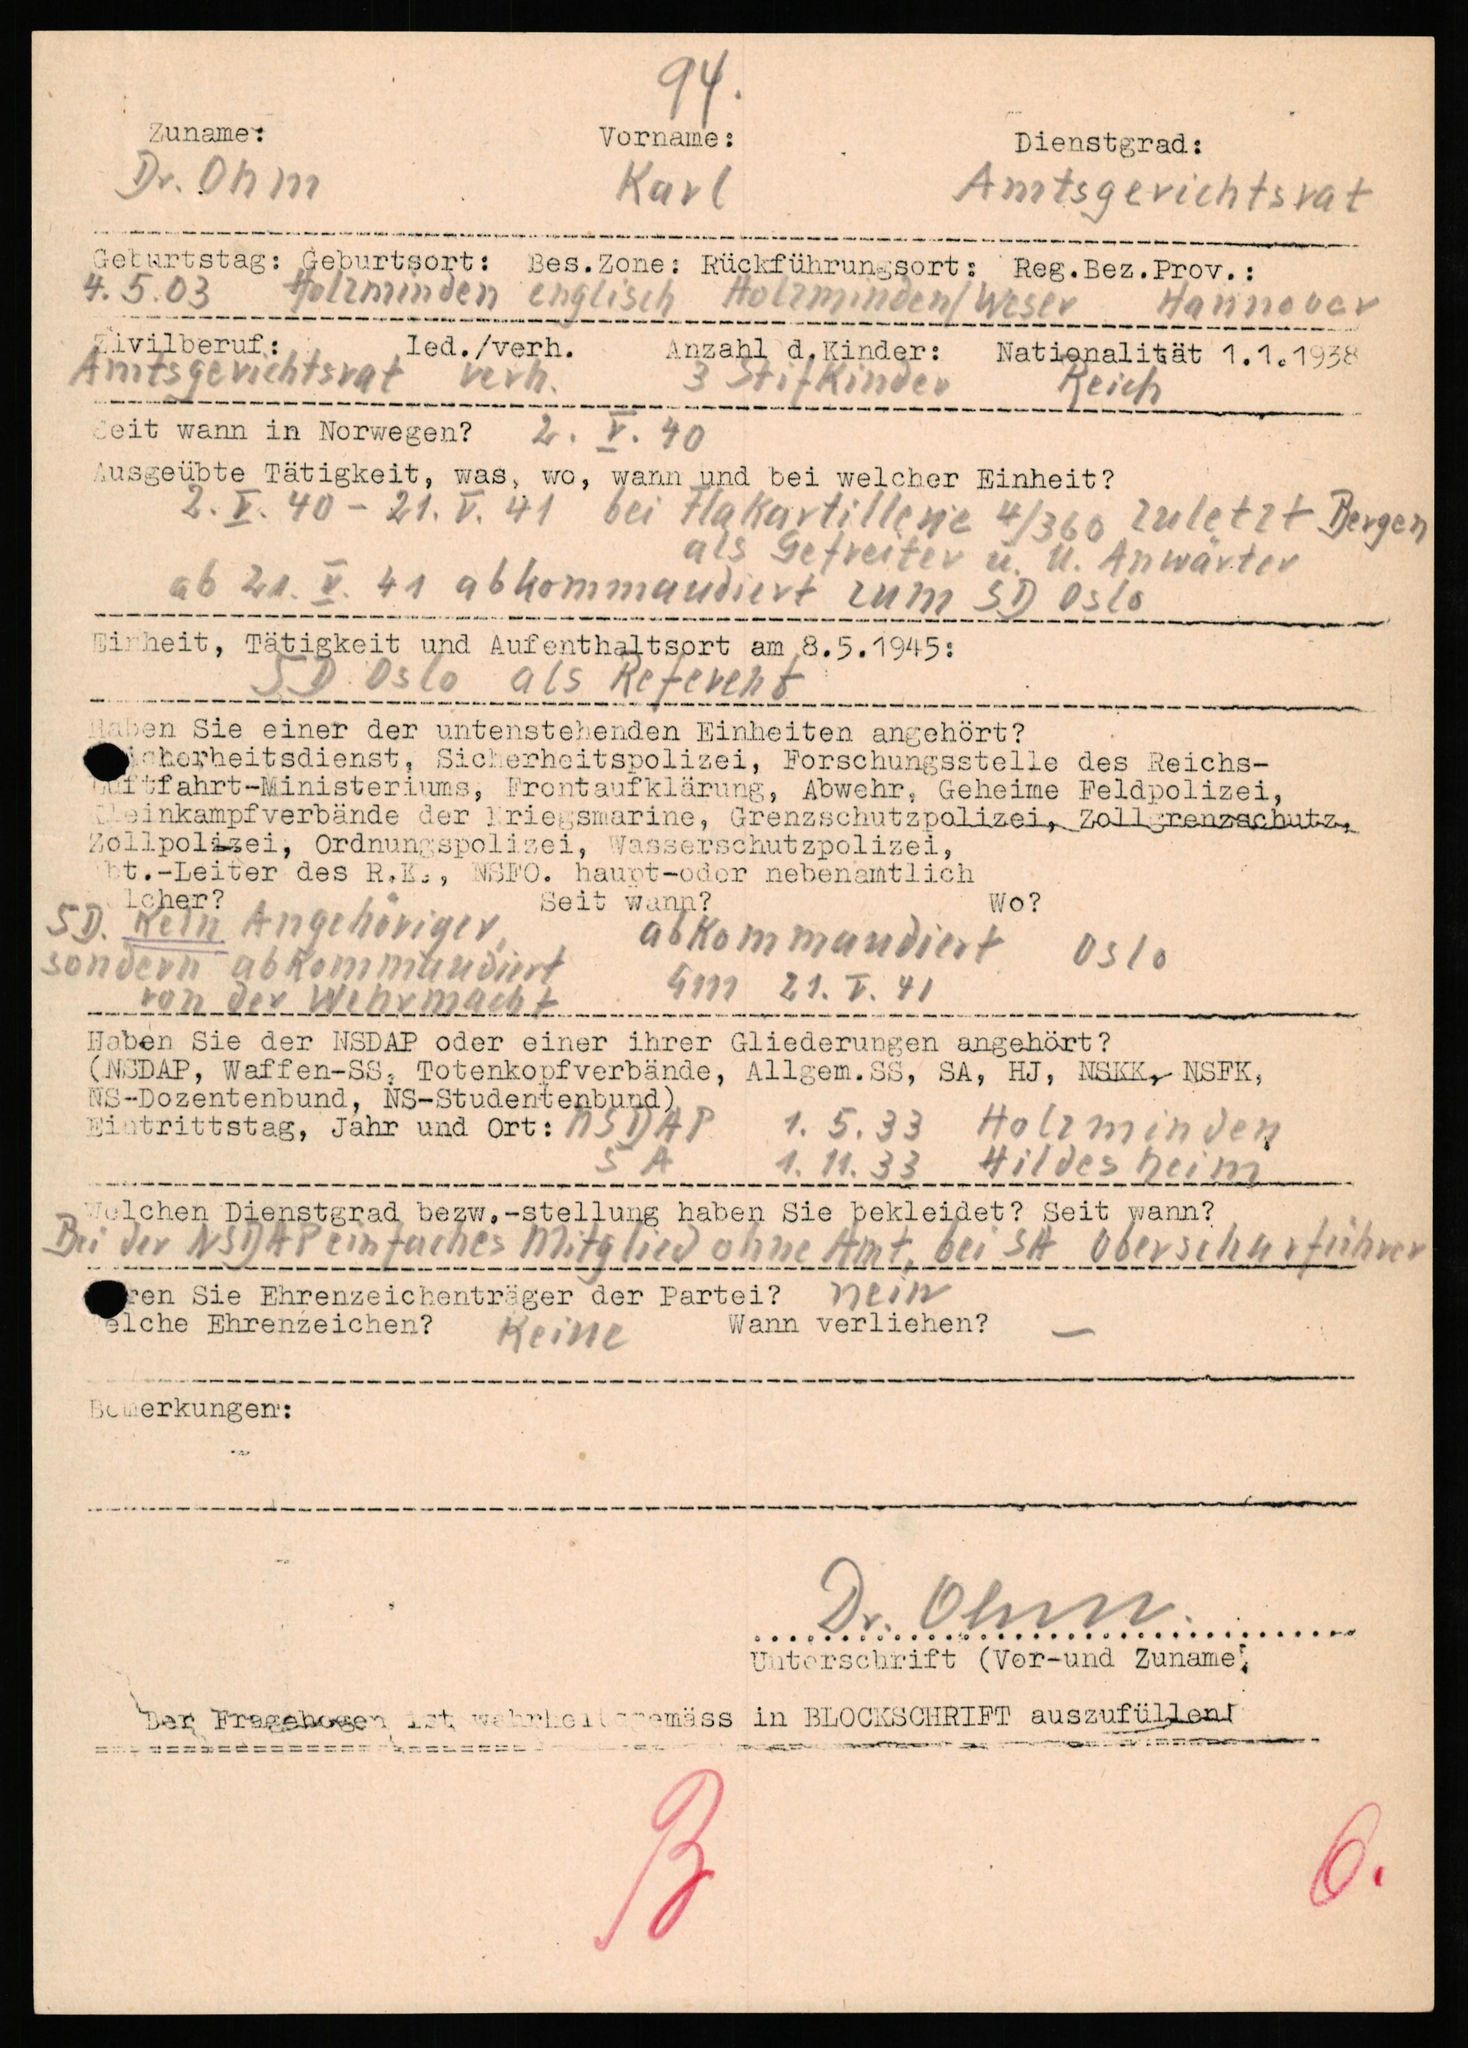 94.
Zuname: Vorname: Dienstgrad:
Dr. Ohm Karl Amtsgerichtsrat
Geburtstag: Geburtsort: Bes.Zone: Rückführungsort: Reg.Bez.Prov.:
4.5.03 Holzminden englisch Holzminden/Weser Hannover
Zivilberuf: led./verh. Anzahl d.Kinder: Nationalität 1.1.1938
Amtsgerichtsrat verh. 3 Stifkinder Reich
Seit wann in Norwegen? 2. V. 40
Ausgeübte Tätigkeit, was, wo, wann und bei welcher Einheit?
2. V. 40 - 21. V. 41 bei Flakartillerie 4/360 zuletzt Bergen
als Gefreiter u. U. Anwärter
ab 21. V. 41 abkommandiert zum SD Oslo
Einheit, Tätigkeit und Aufenthaltsort am 8.5.1945:
SD Oslo als Referent
Haben Sie einer der untenstehenden Einheiten angehört?
icherheitsdienst, Sicherheitspolizei, Forschungsstelle des Reichs-
Luftfahrt-Ministeriums, Frontaufklärung, Abwehr, Geheime Feldpolizei,
Kleinkampfverbände der Kriegsmarine, Grenzschutzpolizei, Zollgrenzschutz,
Zollpolizei, Ordnungspolizei, Wasserschutzpolizei,
bt.-Leiter des R.K., NSFO. haupt-oder nebenamtlich
lcher? Seit wann? Wo?
SD. Kein Angehöriger, abkommandiert Oslo
sondern abkommandiert am 21. V. 41
von der Wehrmacht
Haben Sie der NSDAP oder einer ihrer Gliederungen angehört?
(NSDAP, Waffen-SS, Totenkopfverbände, Allgem.SS, SA, HJ, NSKK, NSFK,
NS-Dozentenbund, NS-Studentenbund)
Eintrittstag, Jahr und Ort: NSDAP 1. 5. 33 Holzminden
SA 1. 11. 33 Hildesheim
Welchen Dienstgrad bezw.-stellung haben Sie bekleidet? Seit wann?
Bei der NSDAP einfaches Mitglied ohne Amt, bei SA Oberscharführer
ren Sie Ehrenzeichenträger der Partei? nein
elche Ehrenzeichen? Keine Wann verliehen? —
Bemerkungen:
Dr. Ohm.
Unterschrift (Vor-und Zuname)
Der Fragebogen ist wahrheitsgemäss in BLOCKSCHRIFT auszufüllen!
B
O.